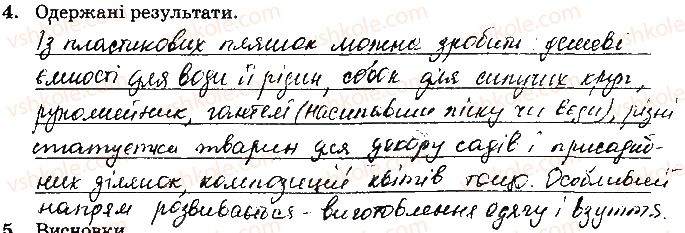 4. Одержані результати.
Із пластикових пляшок можна зробити дешеві
ємності для води й рідин, совок для сипучих круп,
рукомийник, гантелі (насипавши піску чи води), різні
статуетки тварин для декору садів і присадиб-
них ділянок, композицій квітів тощо. Особливий
напрям розвивається - виготовлення одягу і взуття.
5. Висновки.